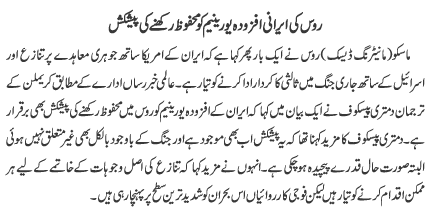 روس کی ایرانی افزودہ یورینیم کو محفوظ رکھنے کی پیشکش
ماسکو (مانیٹرنگ ڈیسک) روس نے ایک بار پھر کہا ہے کہ ایران کے امریکا ساتھ جوہری معاہدے پر تنازع اور
اسرائیل کے ساتھ جاری جنگ میں ثالثی کا کردار ادا کرنے کو تیار ہے۔ عالمی خبر رساں ادارے کے مطابق کریملن کے
ترجمان دمتری پیسکوف نے ایک بیان میں کہا کہ ایران کے افزودہ یورینیم کو روس میں محفوظ رکھنے کی پیشکش بھی برقرار
ہے۔ دمتری پیسکوف کا مزید کہنا تھا کہ یہ پیشکش اب بھی موجود ہے اور جنگ کے باوجود بالکل بھی غیر متعلق نہیں ہوئی
البتہ صورت حال قدرے پیچیدہ ہوچکی ہے۔ انہوں نے مزید کہا کہ تنازع کی اصل وجوہات کے خاتمے کے لیے ہر
ممکن اقدام کرنے کو تیار ہیں لیکن فوجی کارروائیاں اس بحران کو شدید ترین سطح پر پہنچا رہی ہیں۔